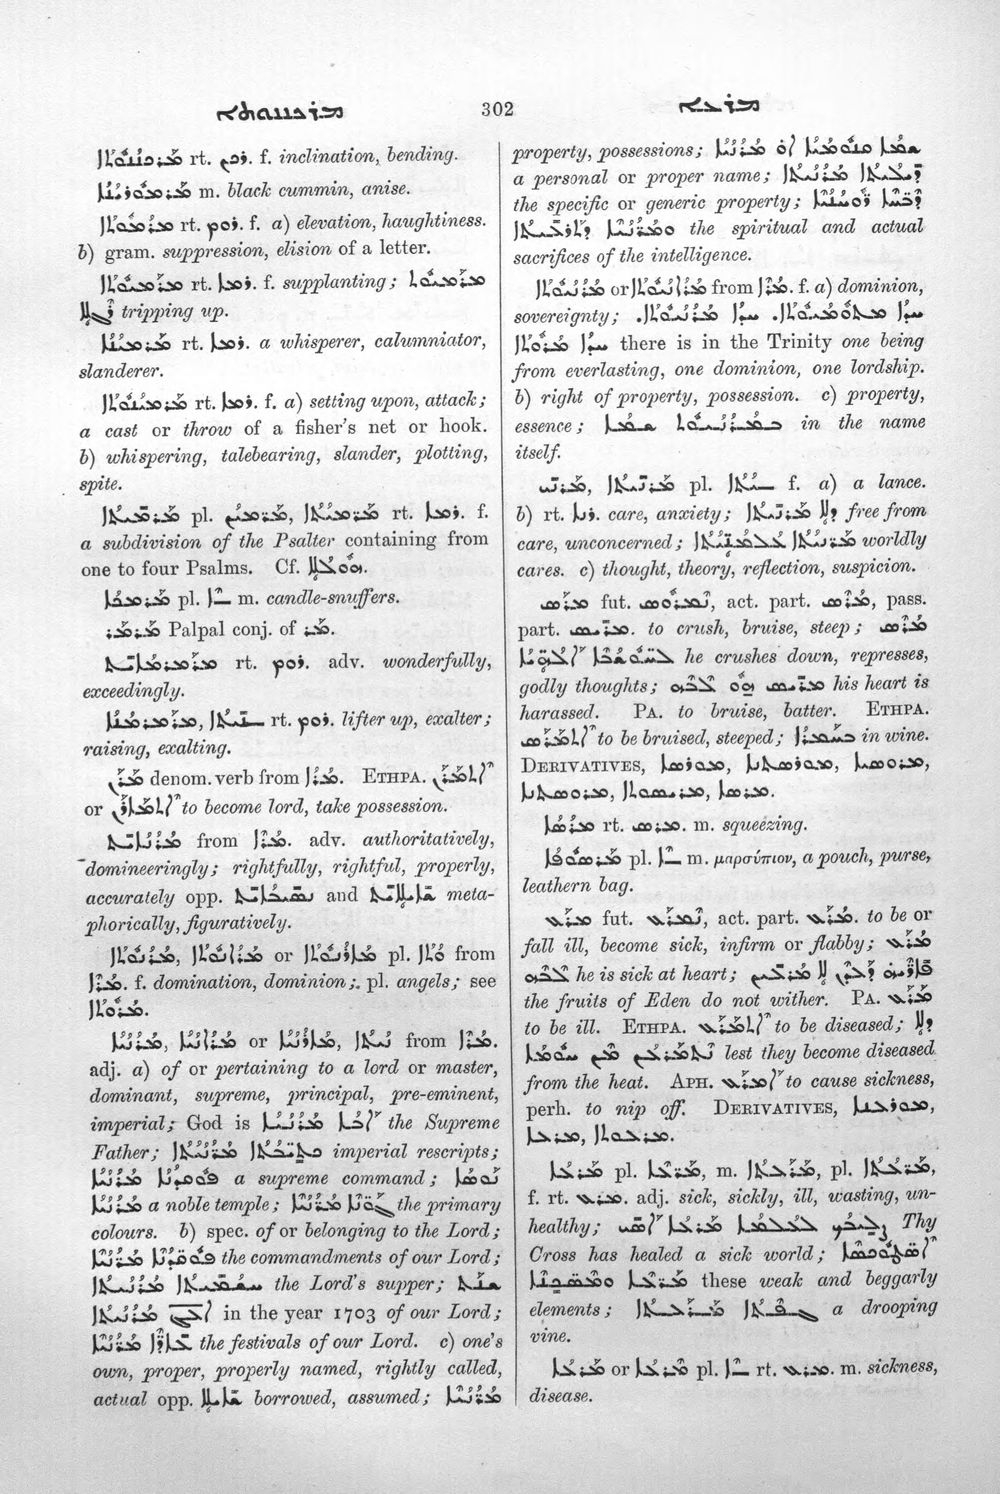 ܡܪܟܢܢܘܬܐ 302 ܡܪܥܐ
ܡܪܟܢܢܘܬܐ rt. ܪܟܢ. f. inclination, bending.
m. black cummin, anise.
rt. ܪܘܡ. f. a) elevation, haughtiness.
b) gram. suppression, elision of a letter.
ܡܪܡܝܘܬܐ rt. ܪܡܐ. f. supplanting; ܡܪܡܝܘܬ
ܪܓܠܐ tripping up.
ܡܪܡܝܢܐ rt. ܪܡܐ. a whisperer, calumniator,
slanderer.
ܡܪܡܝܢܘܬܐ rt. ܪܡܐ. f. a) setting upon, attack;
a cast or throw of a fisher's net or hook.
b) whispering, talebearing, slander, plotting,
spite.
ܡܪܡܝܬܐ pl. ܡܪܡܝܢ, ܡܪܡܝܬܐ rt. ܪܡܐ. f.
a subdivision of the Psalter containing from
one to four Psalms. Cf. ܗܘܠܠܐ.
pl. m. candle-snuffers.
ܡܪܡܪ Palpal conj. of ܡܪ.
ܡܪܡܪܡܐܝܬ rt. ܪܘܡ. adv. wonderfully,
exceedingly.
ܡܪܡܪܡܢܐ, rt. ܪܘܡ. lifter up, exalter;
raising, exalting.
ܡܪܢ denom. verb from ܡܪܐ. ETHPA. ܐܬܡܪܢ
or to become lord, take possession.
ܡܪܢܐܝܬ from ܡܪܐ. adv. authoritatively,
domineeringly; rightfully, rightful, properly,
accurately opp. ܢܣܝܒܐܝܬ and ܫܐܝܠܐܝܬ meta-
phorically, figuratively.
ܡܪܢܘܬܐ, ܡܪܐܢܘܬܐ or ܡܐܪܢܘܬܐ pl. ܘܬܐ from
ܡܪܐ. f. domination, dominion; pl. angels; see
ܡܪܘܬܐ.
ܡܪܢܝܐ, ܡܪܐܢܝܐ or ܡܐܪܢܝܐ, ܢܝܬܐ from ܡܪܐ.
adj. a) of or pertaining to a lord or master,
dominant, supreme, principal, pre-eminent,
imperial; God is ܐܒܐ ܡܪܢܝܐ the Supreme
Father; ܟܬܝܒܬܐ ܡܪܢܝܬܐ imperial rescripts;
ܦܘܩܕܢܐ ܡܪܢܝܐ a supreme command; ܢܘܣܐ
ܡܪܢܝܐ a noble temple; ܓܘܢܐ ܡܪܢܝܐ the primary
colours. b) spec. of or belonging to the Lord;
ܦܘܩܕܢܐ ܡܪܢܝܐ the commandments of our Lord;
ܡܪܢܝܬܐ the Lord's supper; ܫܢܬ
ܡܪܢܝܬܐ in the year 1703 of our Lord;
ܥܐܕܐ ܡܪܢܝܐ the festivals of our Lord. c) one's
own, proper, properly named, rightly called,
actual opp. ܫܐܝܠܐ borrowed, assumed; ܡܪܢܝܐ
property, possessions; ܫܡܐ ܩܢܘܡܝܐ ܐܘ ܡܪܢܝܐ
a personal or proper name; ܕܝܠܝܬܐ ܡܪܢܝܬܐ
the specific or generic property; ܕܒܚܐ ܪܘܚܢܐ
ܘܡܪܢܝܐ ܕܬܪܥܝܬܐ the spiritual and actual
sacrifices of the intelligence.
ܡܪܢܝܘܬܐ or ܡܪܐܢܝܘܬܐ from ܡܪܐ. f. a) dominion,
sovereignty; ܚܕܐ ܡܬܘܡܝܘܬܐ. ܚܕܐ ܡܪܢܝܘܬܐ.
ܚܕܐ ܡܪܘܬܐ there is in the Trinity one being
from everlasting, one dominion, one lordship.
b) right of property, possession. c) property,
essence; ܒܡܪܢܝܘܬ ܫܡܐ in the name
itself.
ܡܪܢܝ, ܡܪܢܝܬܐ pl. ܝܬܐ f. a) a lance.
b) rt. ܪܢܐ. care, anxiety; ܕܠܐ ܡܪܢܝܬܐ free from
care, unconcerned; ܡܪܢܝܬܐ ܥܠܡܢܝܬܐ worldly
cares. c) thought, theory, reflection, suspicion.
ܡܪܣ fut. ܢܡܪܘܣ, act. part. ܡܪܣ, pass.
part. ܡܪܝܣ. to crush, bruise, steep; ܡܪܣ
ܠܚܘܫܒܐ ܐܠܗܝܐ he crushes down, represses,
godly thoughts; ܡܪܝܣ ܗܘ ܠܒܗ his heart is
harassed. PA. to bruise, batter. ETHPA.
ܐܬܡܪܣ to be bruised, steeped; ܒܚܡܪܐ in wine.
DERIVATIVES, ܡܘܪܣܐ,
ܡܪܣܐ.
ܡܪܣܐ rt. ܡܪܣ. m. squeezing.
ܡܪܣܘܦܐ pl. m. μαρσύπιον, a pouch, purse,
leathern bag.
ܡܪܥ fut. ܢܡܪܥ, act. part. ܡܪܥ. to be or
fall ill, become sick, infirm or flabby; ܡܪܥ
ܠܒܗ he is sick at heart; ܦܐܪܘܗܝ ܕܥܕܢ ܠܐ ܡܪܥܝܢ
the fruits of Eden do not wither. PA. ܡܪܥ
to be ill. ETHPA. ܐܬܡܪܥ to be diseased; ܕܠܐ
ܢܬܡܪܥܘܢ ܡܢ ܚܘܡܐ lest they become diseased
from the heat. APH. ܐܡܪܥ to cause sickness,
perh. to nip off. DERIVATIVES, ܡܘܪܥܢܐ,
ܡܪܥܘܬܐ, ܡܪܥܐ.
ܡܪܥܐ pl. ܡܪܥܐ, m. ܡܪܥܬܐ, pl. ܡܪܥܬܐ,
f. rt. ܡܪܥ. adj. sick, sickly, ill, wasting, un-
healthy; ܨܠܝܒܟ ܠܥܠܡܐ ܡܪܥܐ ܐܣܝ Thy
Cross has healed a sick world; ܐܣܛܘܟܣܐ
ܡܪܥܐ ܘܡܣܟܢܐ these weak and beggarly
elements; ܓܦܬܐ ܡܪܥܬܐ a drooping
vine.
ܡܪܥܐ or ܡܪܥܐ pl. rt. ܡܪܥ. m. sickness,
disease.